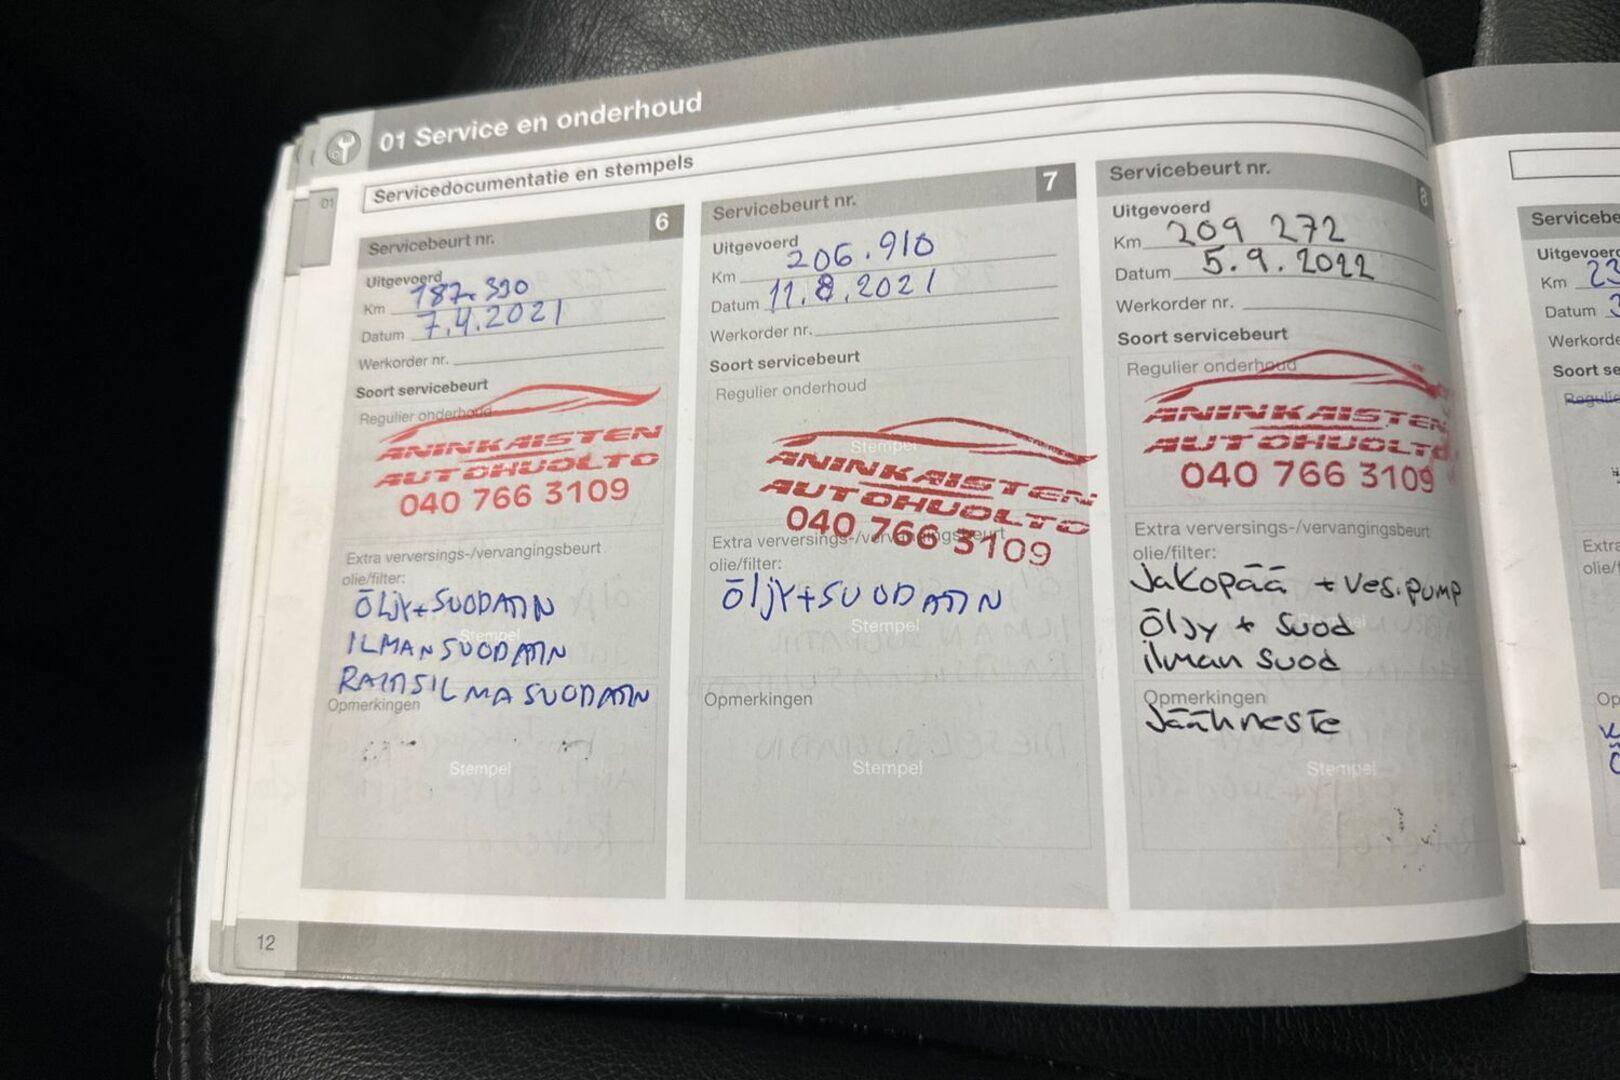 01 Service en onderhoud
01
Servicedocumentatie en stempels
Servicebeurt nr. 6
Uitgevoerd
Km 187.390
Datum 7.4.2021
Werkorder nr.
Soort servicebeurt
Regulier onderhoud
ANINKAISTEN
AUTOHUOLTO
040 766 3109
Extra verversings-/vervangingsbeurt
olie/filter:
ÖLJY+SUODATIN
Stempel
ILMANSUODATIN
RAITISILMASUODATIN
Opmerkingen
Stempel
Servicebeurt nr. 7
Uitgevoerd
Km 206.910
Datum 11.8.2021
Werkorder nr.
Soort servicebeurt
Regulier onderhoud
Stempel
ANINKAISTEN
AUTOHUOLTO
040 766 3109
Extra verversings-/vervangingsbeurt
olie/filter:
ÖljY+SUODATIN
Stempel
Opmerkingen
Stempel
Servicebeurt nr. 8
Uitgevoerd
Km 209 272
Datum 5.9.2022
Werkorder nr.
Soort servicebeurt
Regulier onderhoud
ANINKAISTEN
AUTOHUOLTO
040 766 3109
Extra verversings-/vervangingsbeurt
olie/filter:
Jakopää + ves.pump
Öljy + suod
ilman suod
Opmerkingen
Jäähneste
Stempel
12
Servicebe
Uitgevoerd
Km 23
Datum 3
Werkorde
Soort se
Regulie
Extra
olie/f
Op